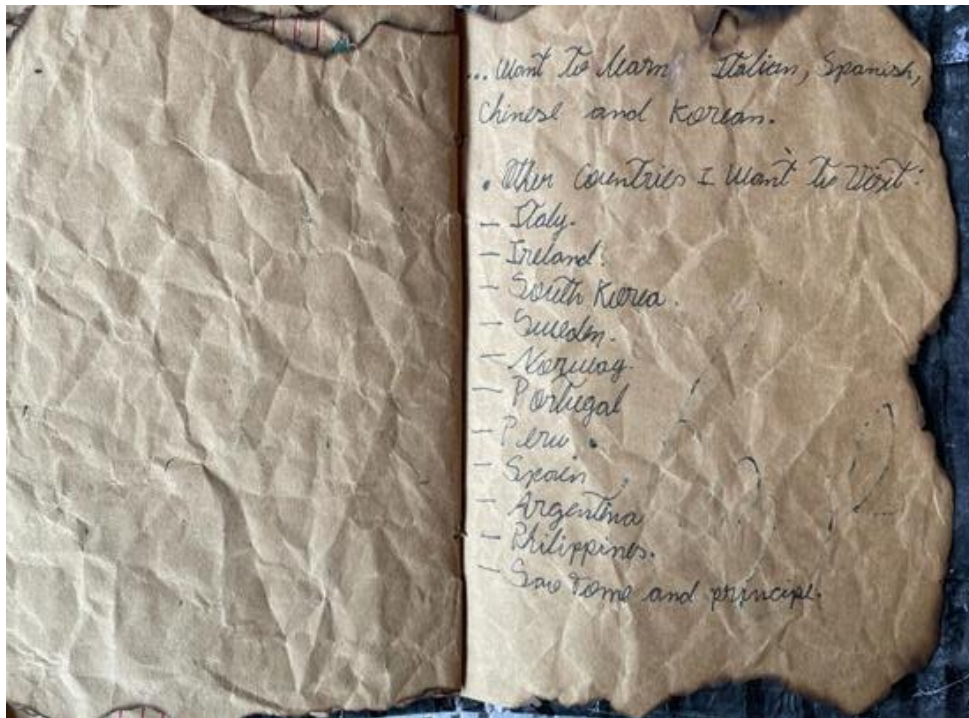 ... Want to learn Italian, Spanish,
Chinese and Korean.
• Other Countries I Want to Visit:
- Italy.
- Ireland.
- South Korea.
- Sweden.
- Norway.
- Portugal
- Peru.
- Spain
- Argentina
- Philippines.
- Sao Tome and principe.